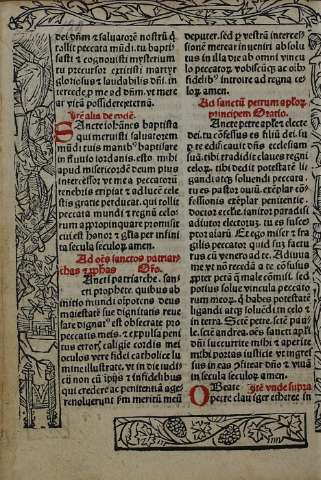 dei,dñm & saluatorē nostrū q̃
tollit peccata mūdi.tu bapti-
sasti & cognouisti mysterium
tu precursor extitisti martyr
gloriosus & laudabilis dñi.in
tercede p̱ me ad dñm.vt mere
ar vitā possidere eternā.
Itē alia de eodē.
Sancte iohānes baptista
qui meruisti saluatorem
mūdi tuis manibꝰ baptisare
in fluuio iordanis.esto mihi
apud misericordē deum pius
intercessor vt me a peccatorū
tenebris eripiat & ad lucē cele
stis gratie perducat.qui tollit
peccata mundi & regnū celo-
rum appropinquare promisit
cui est honor & gloria per infini
ta secula seculoꝝ.amen.
Ad oēs sanctos patriar
chas & ꝓphas Orõ.
Sancti patriarche.sanc-
ti prophete quibus ab
initio mundi oīpotens deus
maiestatē sue dignitatis reue
lare dignatꝰ est obsecrate pro
peccatis meis.et expulsa peni
tus erroꝝ caligie cordis mei
oculos vere fidei catholice lu
mine illustrate.vt in die iudi-
cij non cū īpijs & infidelibus
qui credere ac penitentiā age
re noluerunt ẜm meritū meū
deputer.sed p̱ vestrā intercessi
onē merear inueniri absolu
tus in illa die ab omni vincu
lo peccatoꝝ.vobiscūqꝫ ac oībꝰ
fidelibꝰ introire ad regna ce-
loꝝ.amen.
Ad sanctū petrum apłoꝝ
principem Oratio.
Sancte petre apłe electe
dei.tu cōfessus es filiū dei.su
p̱ te edificauit dñs ecclesiam
suā.tibi tradidit claues regni
celoꝝ.tibi tradidit potestatem li
gandi atqꝫ soluendi peccata.
tu es pastor ouiū.exēplar cōn-
fessionis exēplar penitentie.
doctor ecclie.ianitor paradisi
adiutor electoꝝ.tu es susce-
ptor aīarū.Et ego miser & fra
gilis peccator quid suꝫ factu
rus cū venero ad te.Adiuua
me vt nō recedā a te cōfusus
apter peccā q̃ male cōmisi. sed
potius solue vincula peccato
rum meoꝝ.q̃ habes potestatē
ligandi atqꝫ soluēdi in celo &
in terra.Sancte petre.oēs sancti apłi
dñi succurrite mihi & aperite
mihi portas iusticie vt ingres
sus in eas cōfitear dño & viuā
in secula seculoꝝ amen.
Itē vnde supra
O Beate
Petre claui ger etheree in